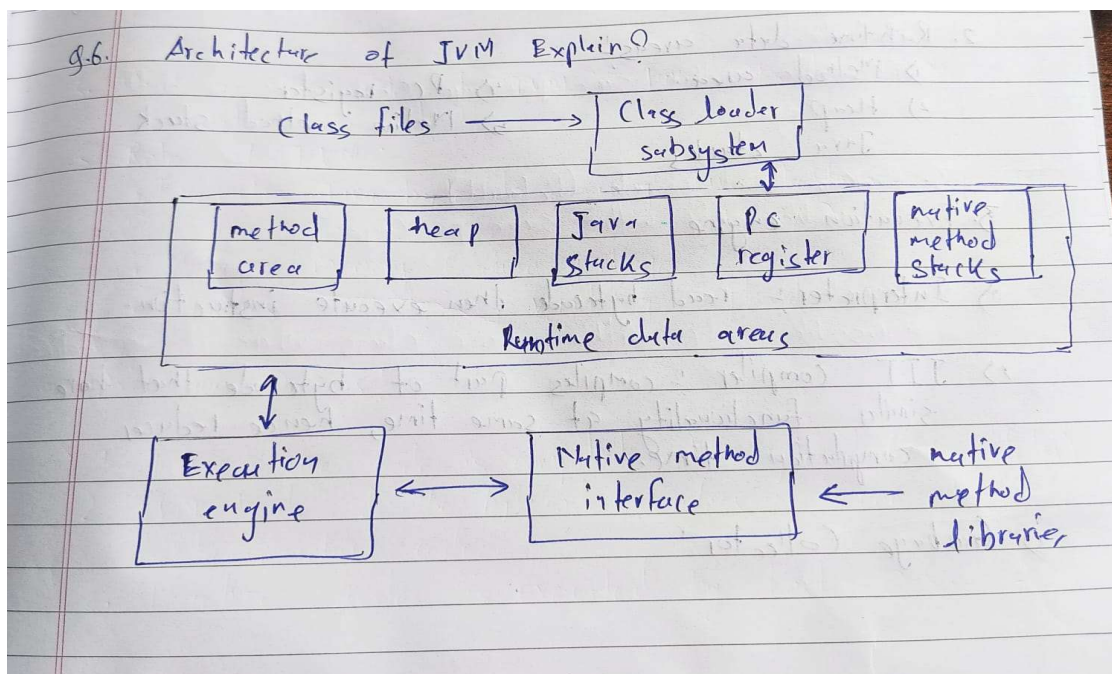 Q.6. Architecture of JVM Explain?
Class files
Class loader
subsystem
method
area
heap
Java
Stacks
PC
register
native
method
Stacks
Runtime data areas
Execution
engine
Native method
interface
native
method
libraries